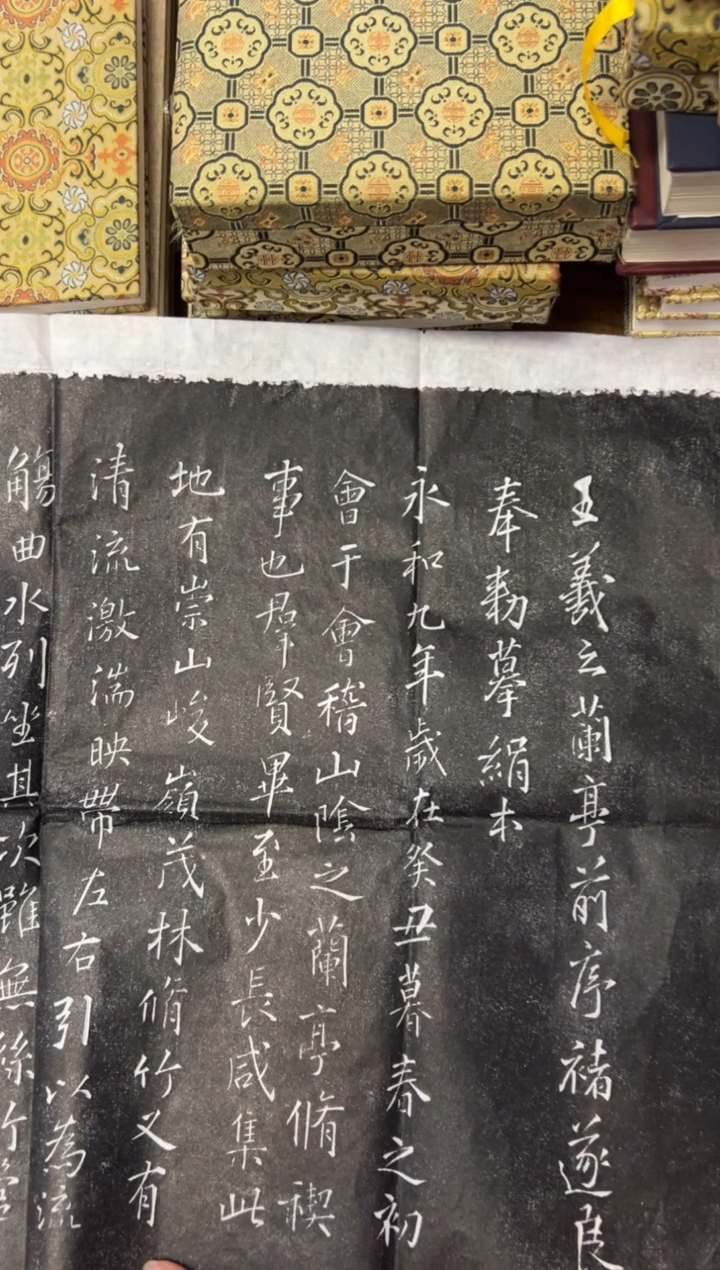 王羲之蘭亭前序褚遂良
奉勑摹絹本
永和九年歲在癸丑暮春之初
會于會稽山陰之蘭亭脩禊
事也羣賢畢至少長咸集此
地有崇山峻嶺茂林脩竹又有
清流激湍映帶左右引以為流
觴曲水列坐其次雖無絲竹管